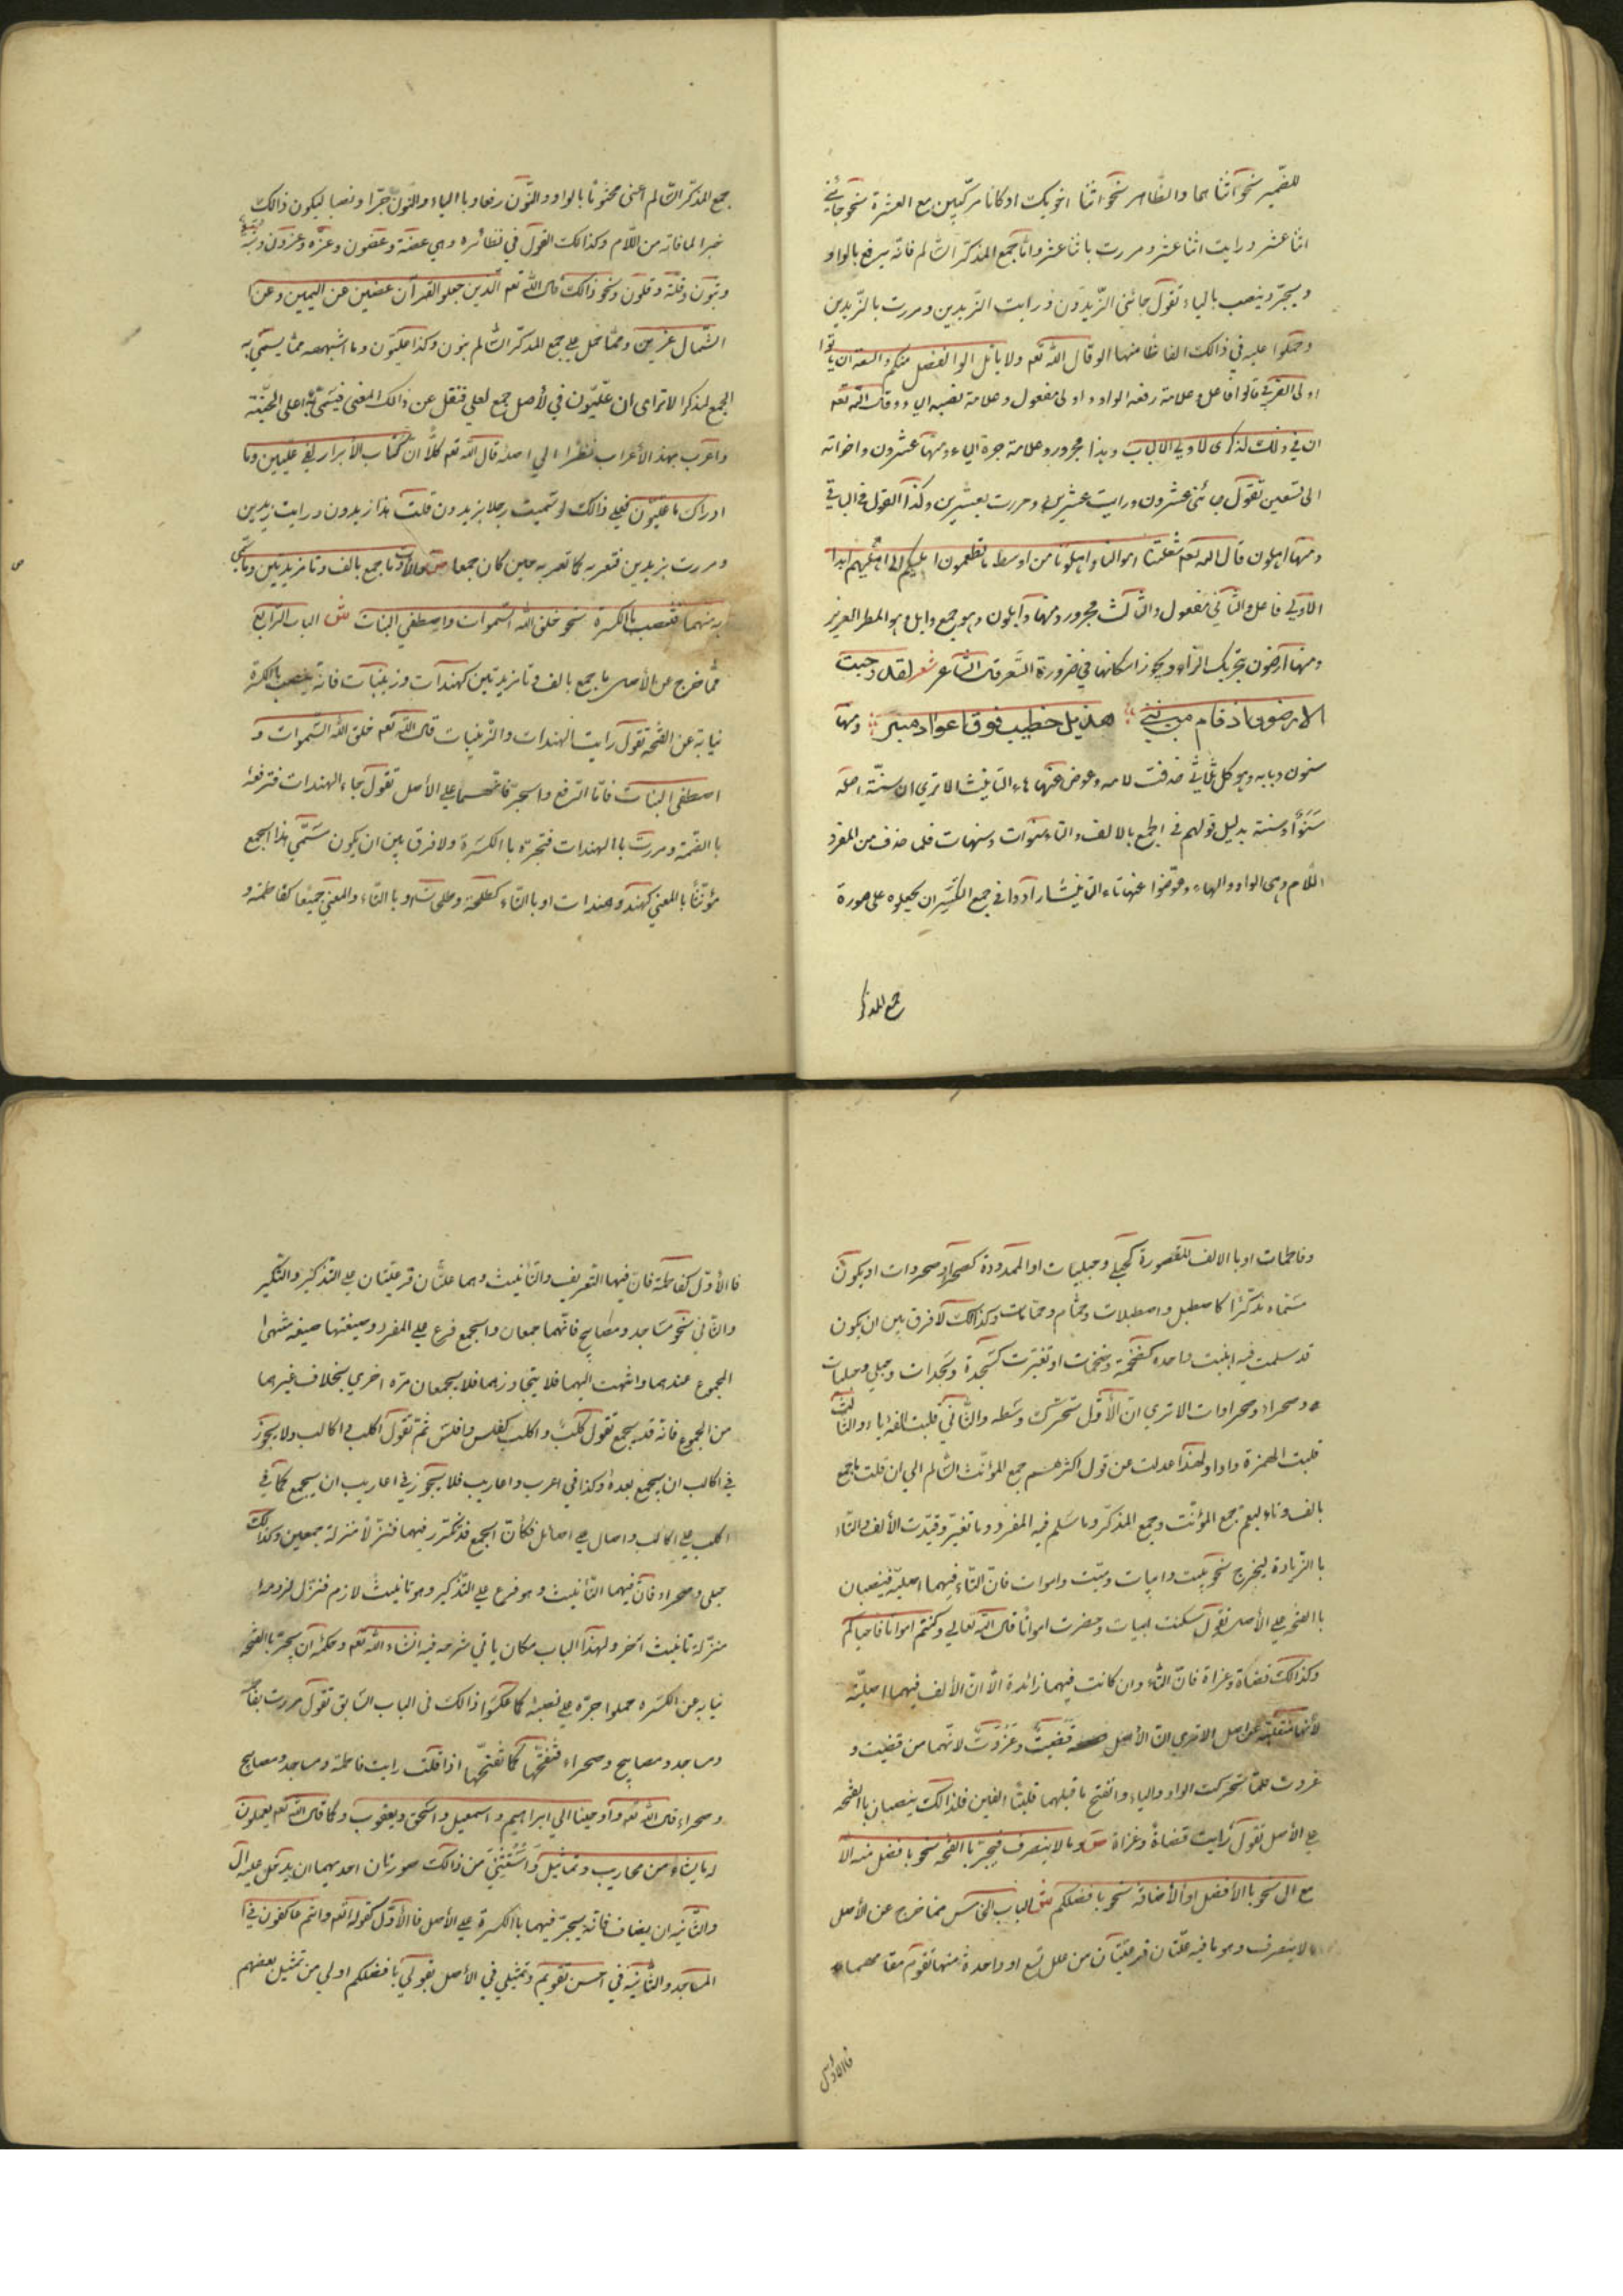 للضمير نحو اثناهما والظاهر نحو اثنا اخويك او كانا مركبين مع العشرة نحو جائني
اثنا عشر ورايت اثنا عشر ومررت باثنا عشر وامّا جمع المذكر السّالم فانّه يرفع بالواو
ويجرّ وينصب بالياء تقول جائني الزّيدون ورايت الزّيدين ومررت بالزّيدين
وحملوا عليه في ذالك الفاظا منها الو قال الله تعم ولا ياتل الوا الفضل منكم والسعة ان يؤتوا
اولى القربى قالوا فاعل وعلامة رفعه الواو واولى مفعول وعلامة نصبه الياء وقال الله تعم
ان في ذلك لذكرى لاولي الالباب وهذا مجرور وعلامة جره الياء ومنها عشرون واخواته
الى تسعين تقول جائني عشرون ورايت عشرين ومررت بعشرين وكذا القول في الباقي
ومنها اهلون قال الله تعم شغلتنا اموالنا واهلونا من اوسط ما تطعمون اهليكم الى اهليهم ابدا
الاولى فاعل والثاني مفعول والثالث مجرور ومنها وابلون وهو جمع وابل وهو المطر الغزير
ومنها ارضون بتحريك الراء ويجوز اسكانها في ضرورة الشعر قال الشاعر شعر لقد وجبت
الارضون اذ قام من بني هذيل خطيب فوق اعواد منبر ومنها
سنون وبابه وهو كل ثلاثي حذفت لامه وعوض عنها هاء التانيث الا ترى ان سنّة اصله
سَنَوٌ او سنة بدليل قولهم في الجمع بالالف والتاء سنوات وسنهات فلما حذف من المفرد
اللام وهي الواو والهاء وعوّضوا عنها تاء التانيث ارادوا في جمع التكسير ان يجعلوه على صورة
جمع المذكر
جمع المذكر السّالم اعنى مختوما بالواو والنّون رفعا وبا الياء والنّون جرّا ونصبا ليكون ذالك
خبرا لما فاته من اللّام وكذالك القول في نظائره وهي عضة وعضون وعزه وعزون وثبة
وثبون وقلّة وقلون ونحو ذالك قال الله تعم الّذين جعلو القرآن عضين عن اليمين وعن
الشّمال عزين وممّا حمل على جمع المذكر السّالم بنون وكذا علّيون وما اشبهه ممّا يسمّى به
الجمع المذكر الا ترى ان علّيون في لأصل جمع لعلي فنقل عن ذالك المعنى فيسمّى به اعلى الجنّة
واعرب بهذ الأعراب نظرا الي اصله قال الله تعم كلّا ان كتاب الأبرار لفي علّيين وما
ادراك ما علّيّون فعلى ذالك لو سمّيت رجلا بزيدون قلت هذا زيدون ورايت زيدين
ومررت بزيدين فتعربه كما تعربه حين كان جمعا ص والاولات وما جمع بالف وتا مزيدتين وما سمّي
به منهما فتنصب بالكسرة نحو خلق الله السّموات واصطفي البنات ش الباب الرّابع
ممّا خرج عن الأصل ما جمع بالف وتا مزيدتين كهندات وزينبات فانّه ينصب بالكسرة
نيابة عن الفتحة تقول رايت الهندات والزّينبات قال الله تعم خلق الله السّموات و
اصطفى البنات فامّا الرّفع والجرّ فانّهما على الأصل تقول جاء الهندات فترفعه
با الضّمة ومررت با الهندات فتجرّه با الكسرة ولا فرق بين ان يكون مسمّي هذا الجمع
مؤنّثا با المعني كهند وهندات او با التّاء كطلحة وطلحات وبا التّاء والمعني جميعا كفاطمة و
وفاطمات او با الالف المقصورة كحبلي وحبليات او الممدودة كصحراء وصحروات او يكون
مسمّاه مذكّرا كاصطبل واصطبلات وحمّام وحمّامات وكذالك لا فرق بين ان يكون
قد سلمت فيه ابنيت واحده كضخمة وضخمات او تغيّرت كسجدة وسجدات وحبلي وحبليات
وصحراء وصحراوات الا تري انّ الأوّل تحرّك وسطه والثّاني قلبت الفه ياء والثّالث
قلبت الهمزة واوا ولهذا عدلت عن قول اكثرهم جمع المؤنّث السّالم الي ان قلت ما جمع
بالف وتاء ليعم جمع المؤنّث وجمع المذكّر وما سلم فيه المفرد وما تغيّر وقيّدت الألف والتّاء
با الزّيادة ليخرج نحو بيت وابيات وميّت واموات فانّ التّاء فيهما اصليّة فينصبان
با الفتحة على الأصل تقول سكنت ابيات وحضرت امواتا قال الله تعالي وكنتم امواتا فاحياكم
وكذالك قضاة وغزاة فانّ التّاء وان كانت فيهما زائدة الّا انّ الألف فيهما اصليّة
لأنّها منقلبة عن اصل الا تري انّ الأصل قضيت وغزوت لانّهما من قضيت و
غزوت فلمّا تحركت الواو والياء وانفتح ما قبلهما قلبتا الفين فلذالك ينصبان با الفتحة
على الأصل تقول رايت قضاة وغزاة ص وما لا ينصرف فيجرّ با الفتحة نحو بافضل منه الّا
مع ال نحو با الأفضل او الأضافة نحو بافضلكم ش الباب الخامس ممّا خرج عن الأصل
ما لا ينصرف وهو ما فيه علّتان فرعيّتان من علل تسع او واحدة منها تقوم مقامهما
فا الاوّل
فا الأوّل كفاطمة فانّ فيها التعريف والتّأنيث وهما علّتان فرعيّتان على التذكير والتنكير
والثاني نحو مساجد ومصابيح فانّهما جمعان والجمع فرع على المفرد وصيغتها صيغة منتهى
الجموع عندهما وانتهت اليهما فلا يتجاوزهما فلا يجمعان مرّه اخري بخلاف غيرهما
من الجموع فانّه قد يجمع تقول كلب واكلب كفلس وافلس ثمّ تقول اكلب واكالب ولا يجوز
في اكالب ان يجمع بعده وكذا في اعرب واعاريب فلا يجوز في اعاريب ان يجمع كما في
اكلب على اكالب واصال على اصائل فكأنّ الجمع قد تكرّر فيهما فنزّلا منزلة جمعين وكذالك
حبلى وصحراء فانّ فيهما التّأنيث وهو فرع على التّذكير وهو تانيث لازم فنزّل لزومه
منزّلة تانيث آخر ولهذا الباب مكان ياتي شرحه فيه انشاء الله تعم وحكمه ان يجرّ با الفتحة
نيابه عن الكسره حملوا جرّه على نصبه كما عكسوا ذالك في الباب السّابق تقول مررت بفاطمة
ومساجد ومصابيح وصحراء فتفتحها كما تفتحها اذا قلت رايت فاطمة ومساجد ومصابيح
وصحراء قال الله تعم واوحينا الي ابراهيم واسمعيل واسحق ويعقوب وكما قال الله تعم يعملون
له ما يشاء من محاريب وتماثيل واستثنى من ذالك صورتان احديهما ان يدخل عليه ال
والثّانيه ان يضاف فانّه يجرّ فيهما با الكسرة على الأصل فا الأوّل كقوله تعم وانتم عاكفون في
المساجد والثّانية في احسن تقويم وتمثيلي في الأصل بقولي بافضلكم اولي من تمثيل بعضهم